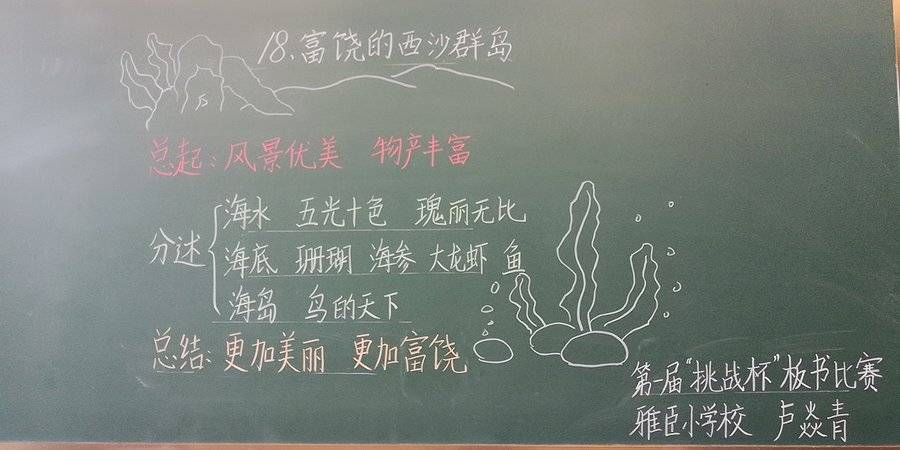 18、富饶的西沙群岛
总起：风景优美 物产丰富
分述
海水 五光十色 瑰丽无比
海底 珊瑚 海参 大龙虾 鱼
海岛 鸟的天下
总结：更加美丽 更加富饶
第一届“挑战杯”板书比赛
雅臣小学校 卢焱青